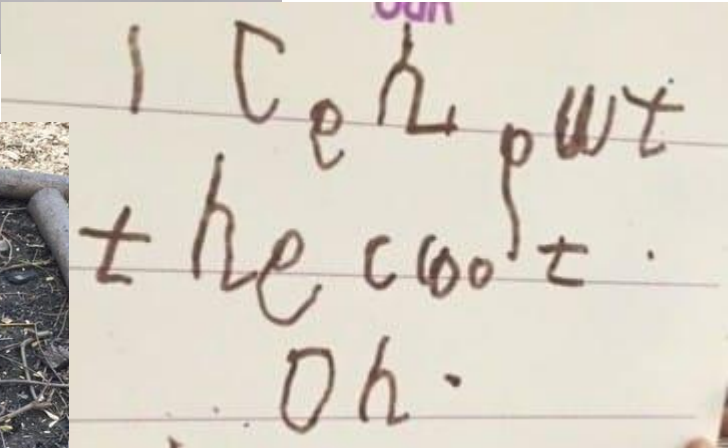 I Cen put
the coot.
On.